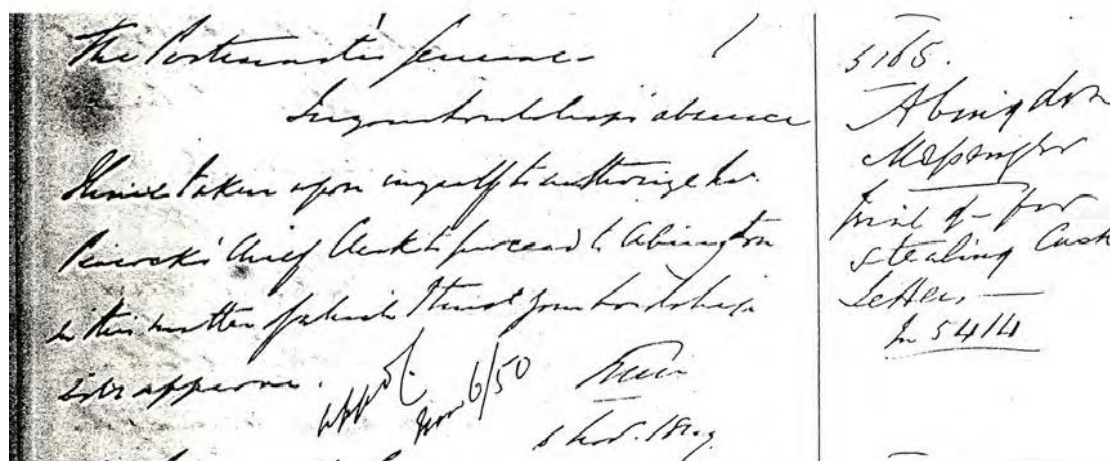 The Postmaster General
In your Lordship's absence
I have taken upon myself to authorize Mr.
Peacock's Chief Clerk to proceed to Abington
in this matter of which I trust your Lordship
will approve.
5 Nov. 1849
appd.
Nov 6/50
5165.
Abingdon
Messenger
trial of – for
stealing Cash
Letter, —
In 5414